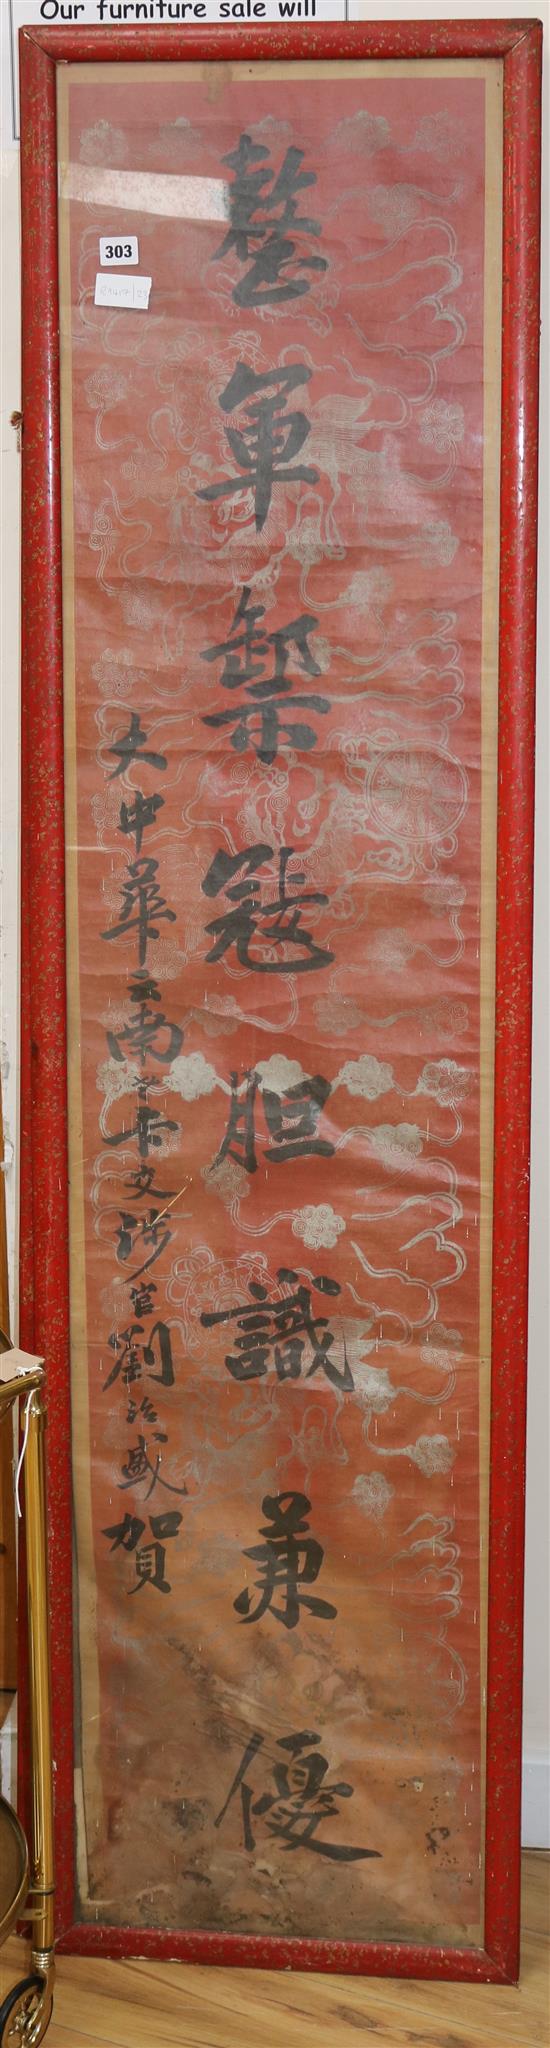 Our furniture sale will
303
整軍禦冦胆識兼優
大中華云南卡交涉官劉治盛賀